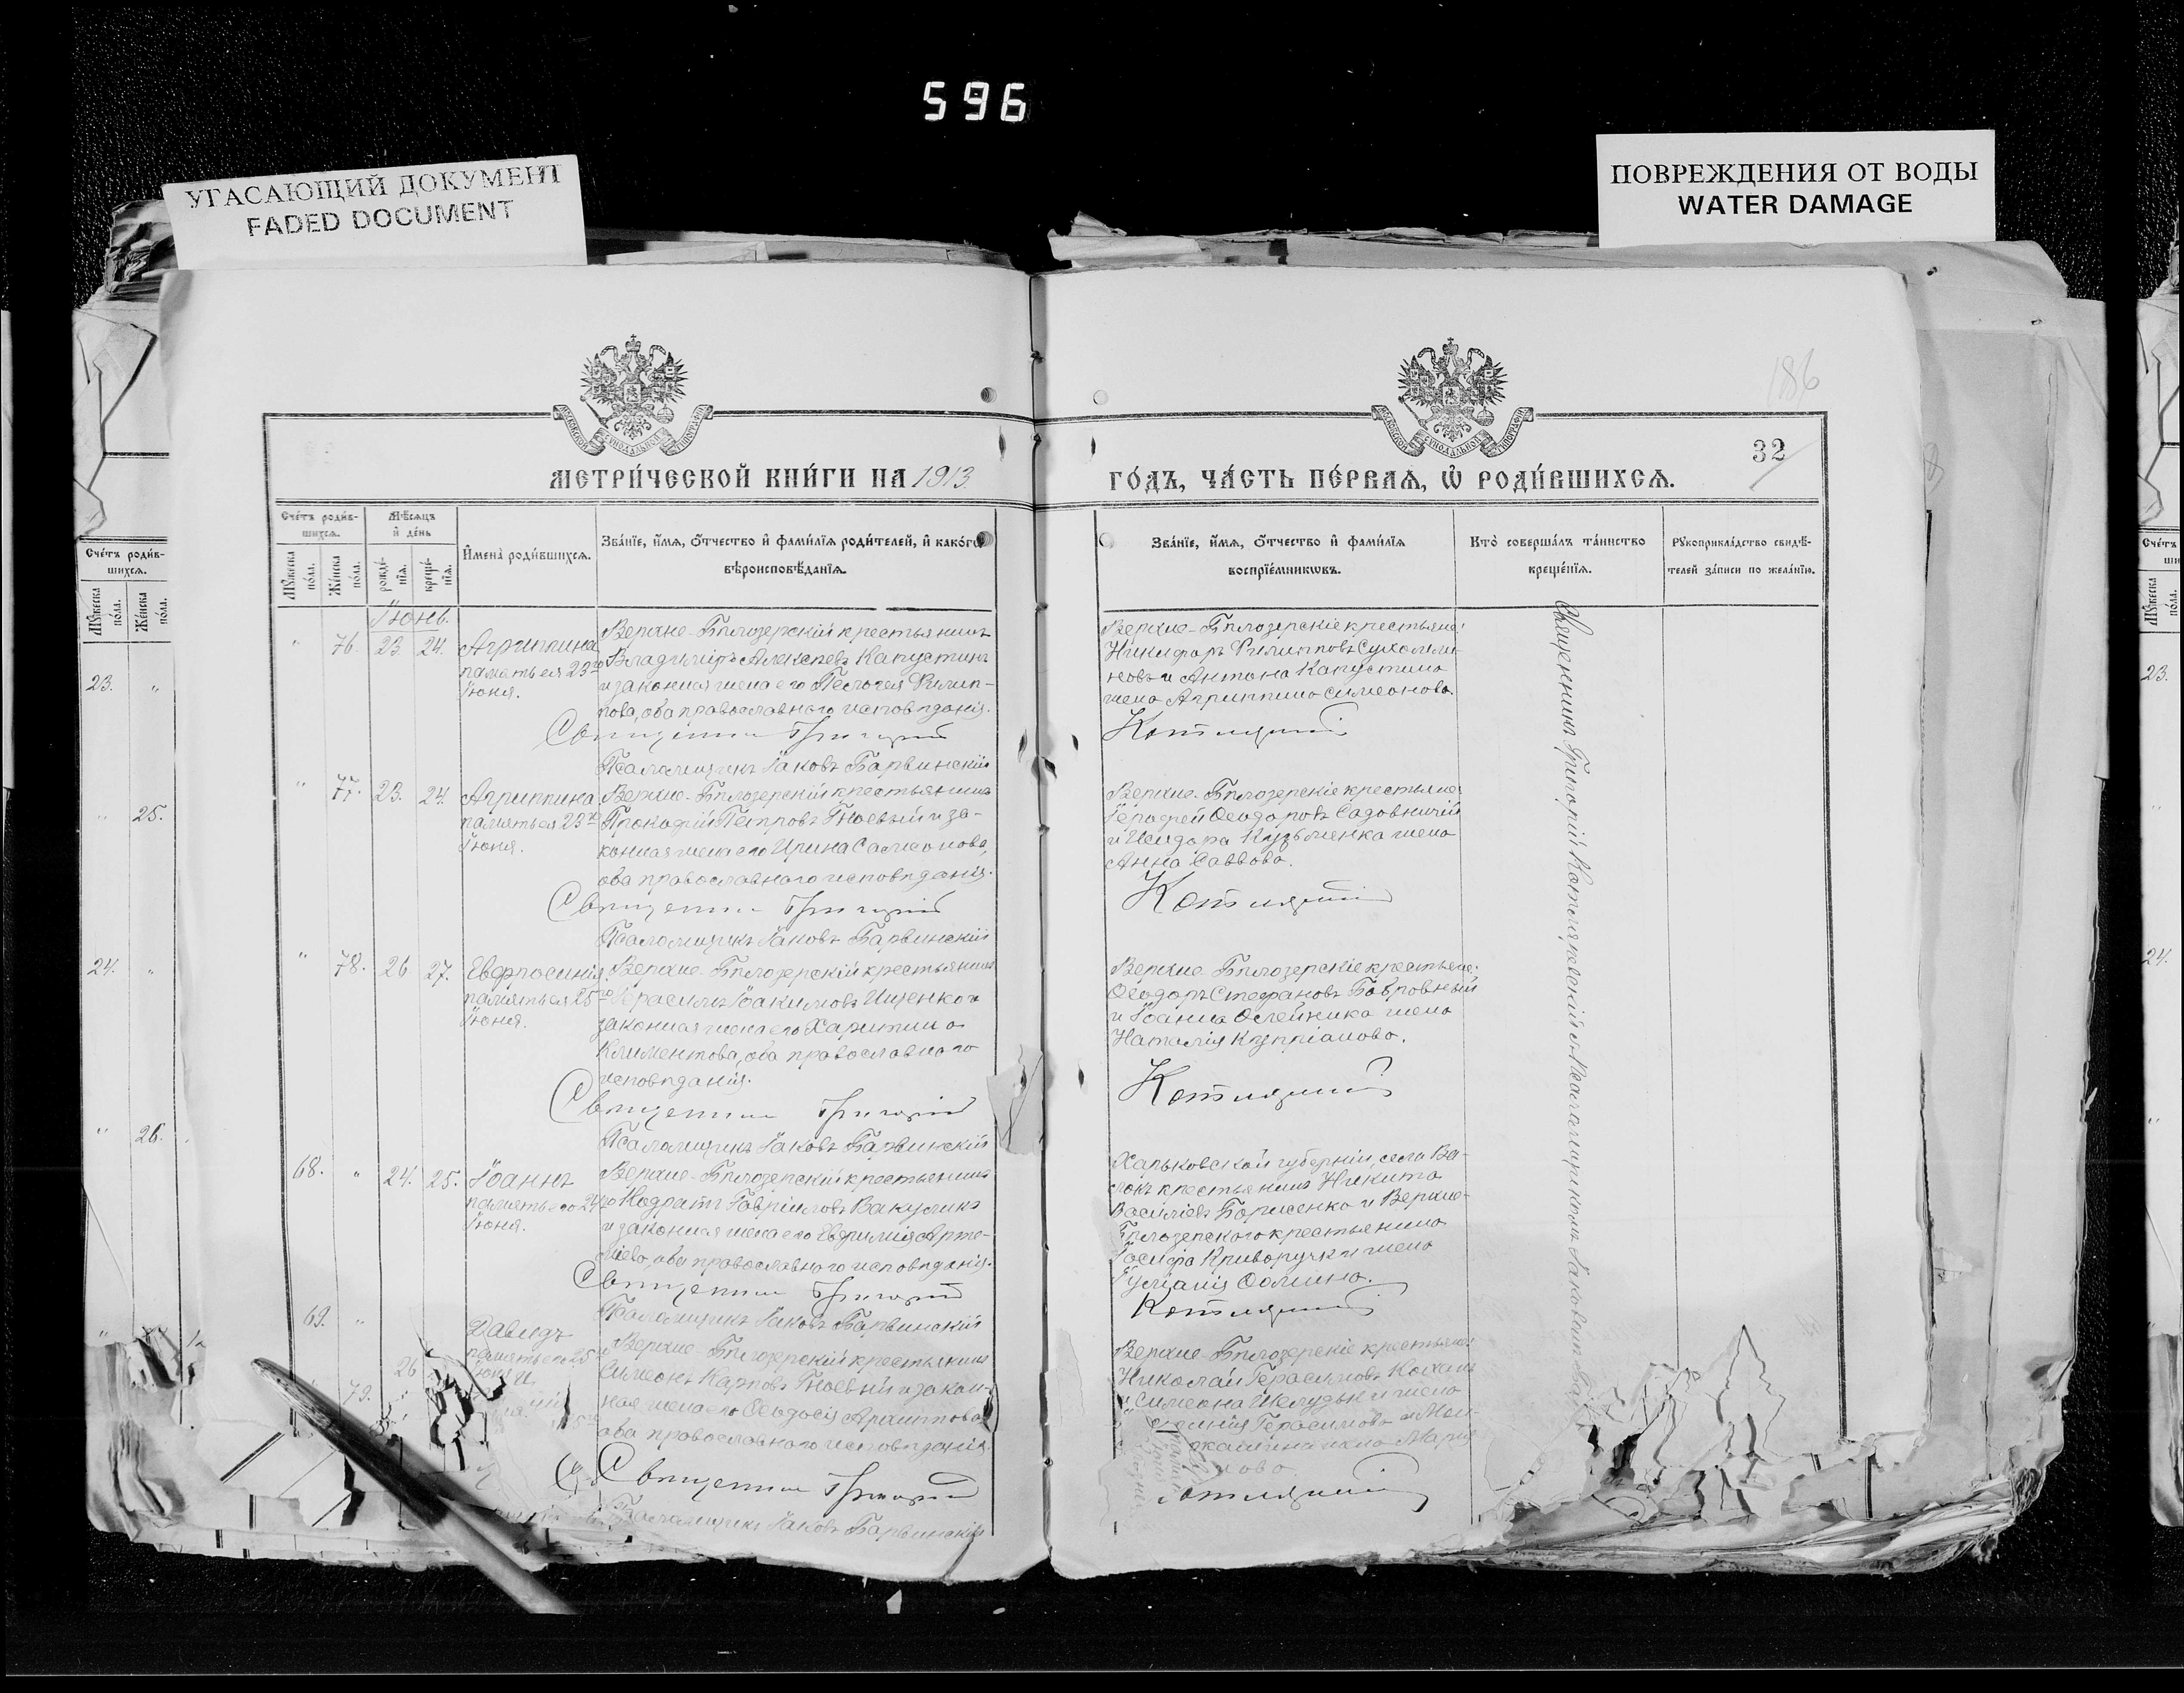 596
УГАСАЮЩИЙ ДОКУМЕНТ
FADED DOCUMENT
ПОВРЕЖДЕНИЯ ОТ ВОДЫ
WATER DAMAGE
186
32
МЕТРИ́ЧЕСКОЙ КНИ́ГИ НА 1913
ГО́ДЪ, ЧА́СТЬ ПЕ́РВАѦ, Ѽ РОДИ́ВШИХСѦ.
Сче́тъ роди́в-
шихсѧ.
Мꙋ́жеска по́ла.
Же́нска по́ла.
Мѣ́сѧцъ
и҆ де́нь
рожде́-
нїѧ.
креще́-
нїѧ.
И҆мена̀ роди́вшихсѧ.
Зва́нїе, и҆́мѧ, о҆́тчество и҆ фами́лїѧ роди́телей, и҆ како́гѡ
вѣроисповѣ́данїѧ.
Зва́нїе, и҆́мѧ, о҆́тчество и҆ фами́лїѧ
воспрїе́мникѡвъ.
Кто̀ соверша́лъ та́инство
креще́нїѧ.
Рꙋкоприкла́дство свидѣ́-
телей за́писи по жела́нїю.
Іюнь.
" 76. 23. 24. Агриппина
память ея 23го
Іюня.
Верхне-Бѣлозерскій крестьянинъ
Владиміръ Алексѣевъ Капустинъ
и законная жена его Пелагея Филип-
пова, оба православнаго исповѣданія.
Священникъ Григорій
Псаломщикъ Іаковъ Барвинскій
Верхне-Бѣлозерскіе крестьяне:
Никифоръ Филипповъ Сухомли-
новъ и Антона Капустина
жена Агриппина Симеонова.
" 77. 23. 24. Агриппина
память ея 23го
Іюня.
Верхне-Бѣлозерскій крестьянинъ
Прокофій Петровъ Гноевый и за-
конная жена его Ирина Самсонова,
оба православнаго исповѣданія.
Священникъ Григорій
Псаломщикъ Іаковъ Барвинскій
Верхне-Бѣлозерскіе крестьяне:
Ѳеодоровъ Садовничій
и Исидора Кузьменка жена
Анна Саввова.
" 78. 26. 27. Евфросинія
память ея 25го
Іюня.
Верхне-Бѣлозерскій крестьянинъ
Герасимъ Іоакимовъ Ищенко и
законная жена его Харитина
Климентова, оба православнаго
исповѣданія.
Священникъ Григорій
Псаломщикъ Іаковъ Барвинскій
Верхне-Бѣлозерскіе крестьяне:
Ѳеодоръ Стефановъ Бобровный
и Іоанна Олейника жена
Наталія Купріанова.
68. " 24. 25. Іоаннъ
память его 24го
Іюня.
Верхне-Бѣлозерскій крестьянинъ
Кодратъ Гавріиловъ Вакуликъ
и законная жена его Евфимія Арте-
міева, оба православнаго исповѣданія.
Священникъ Григорій
Псаломщикъ Іаковъ Барвинскій
Харьковской губерніи, села Ва-
крестьянинъ Никита
Василіевъ Борисенко и Верхне-
Бѣлозерского крестьянина
Іосифа Криворучки жена
Іуліанія Ѳомина.
69. "
26
Давидъ
память его 25
Іюня
Верхне-Бѣлозерскій крестьянинъ
Симеонъ Карповъ Гноевый и закон-
ная жена его Ѳеодосія Архиппова,
оба православнаго исповѣданія.
Священникъ Григорій
Псаломщикъ Іаковъ Барвинскій
Верхне-Бѣлозерскіе крестьяне:
Николай Герасимовъ
и Симеона жена
Герасимова
Марія
79.
Священникъ Григорій Котляревскій съ Псаломщикомъ Іаковомъ
Сче́тъ роди́в-
шихсѧ.
Мꙋ́жеска по́ла.
Же́нска по́ла.
23. "
" 25.
24. "
" 26.
Сче́тъ
23.
24.